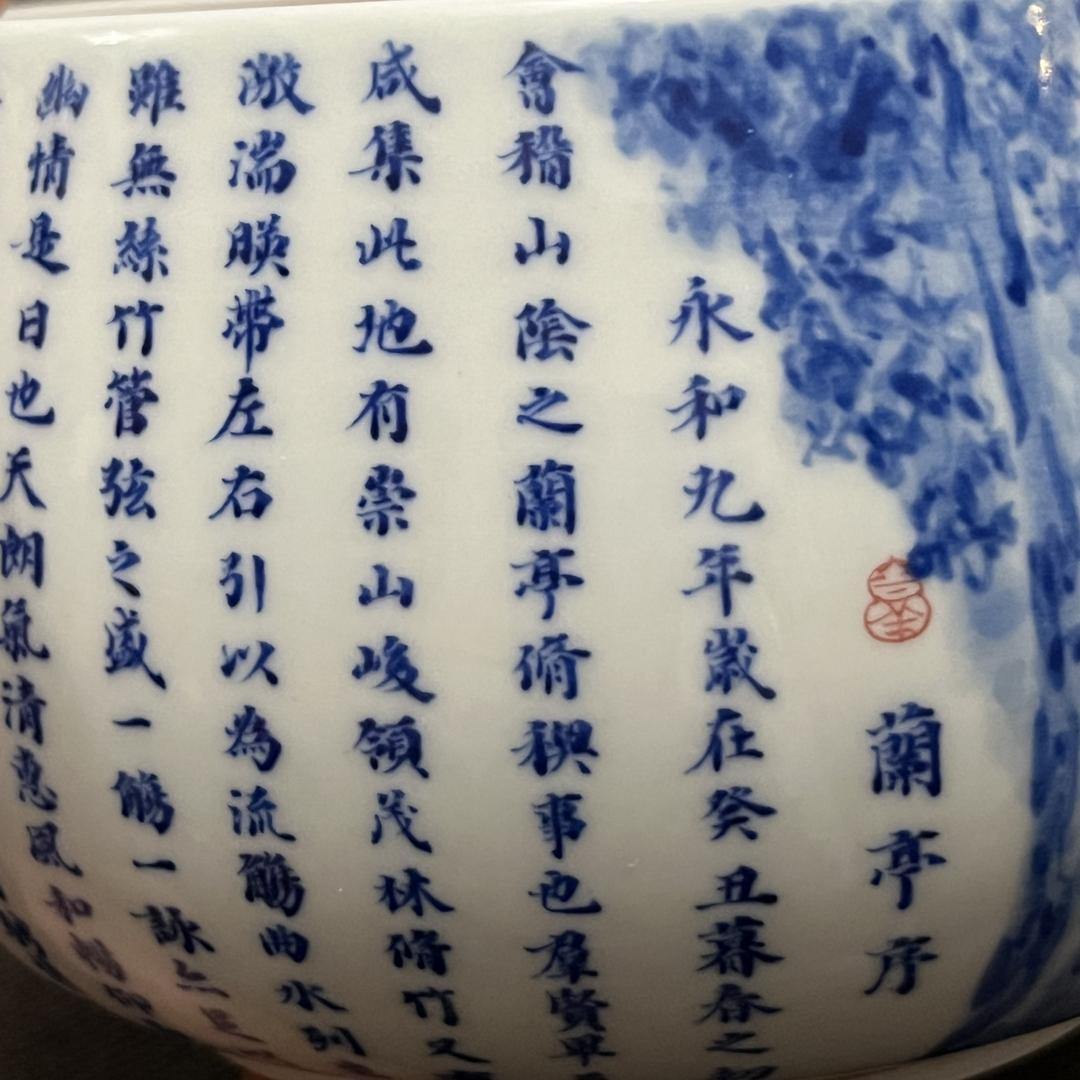 蘭亭序
永和九年歲在癸丑暮春之初
會稽山陰之蘭亭脩稧事也羣賢畢
咸集此地有崇山峻領茂林脩竹又
激湍暎帶左右引以為流觴曲水列
雖無絲竹管弦之盛一觴一詠亦足
幽情是日也天朗氣清惠風和暢仰